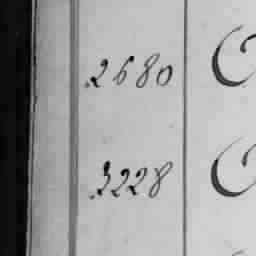 2680
3228